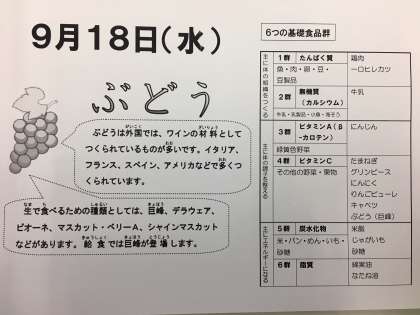 9月18日(水)
ぶどう
ぶどうは外国では、ワインの材料として
つくられているものが多いです。イタリア、
フランス、スペイン、アメリカなどで多くつ
くられています。
生で食べるための種類としては、巨峰、デラウェア、
ピオーネ、マスカット・ベリーA、シャインマスカット
などがあります。給食では巨峰が登場します。
6つの基礎食品群
主に体の組織をつくる
1群 たんぱく質 鶏肉
魚・肉・卵・豆・ 一口ヒレカツ
豆製品
2群 無機質 牛乳
(カルシウム)
牛乳・乳製品・小魚・海そう
主に体の調子を整える
3群 ビタミンA(β にんじん
-カロテン)
緑黄色野菜
4群 ビタミンC たまねぎ
その他の野菜・果物 グリンピース
にんにく
りんごピューレ
キャベツ
ぶどう(巨峰)
主にエネルギーになる
5群 炭水化物 米脂
米・パン・めん・いも・ じゃがいも
砂糖 砂糖
6群 脂質 綿実油
なたね油